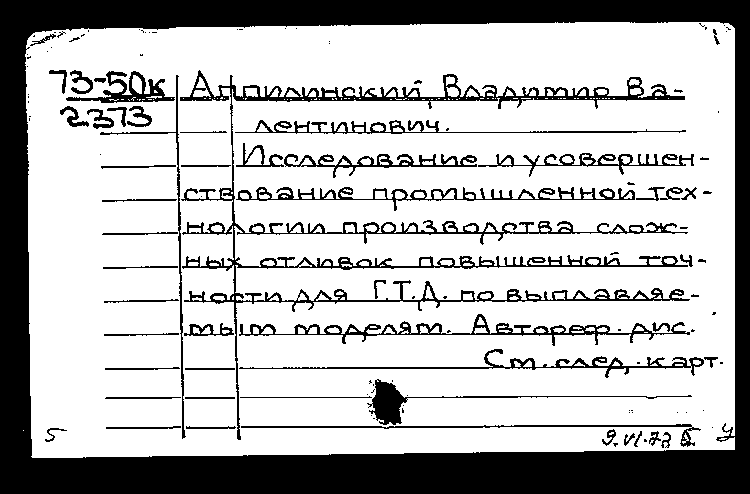 73-50к Аппилинский, Владимир Ва-
2373 лентинович.
Исследование и усовершен-
ствование промышленной тех-
нологии производства слож-
ных отливок повышенной точ-
ности для Г.Т.Д. по выплавляе-
мым моделям. Автореф. дис.
См. след. карт.
5 9.VI.73